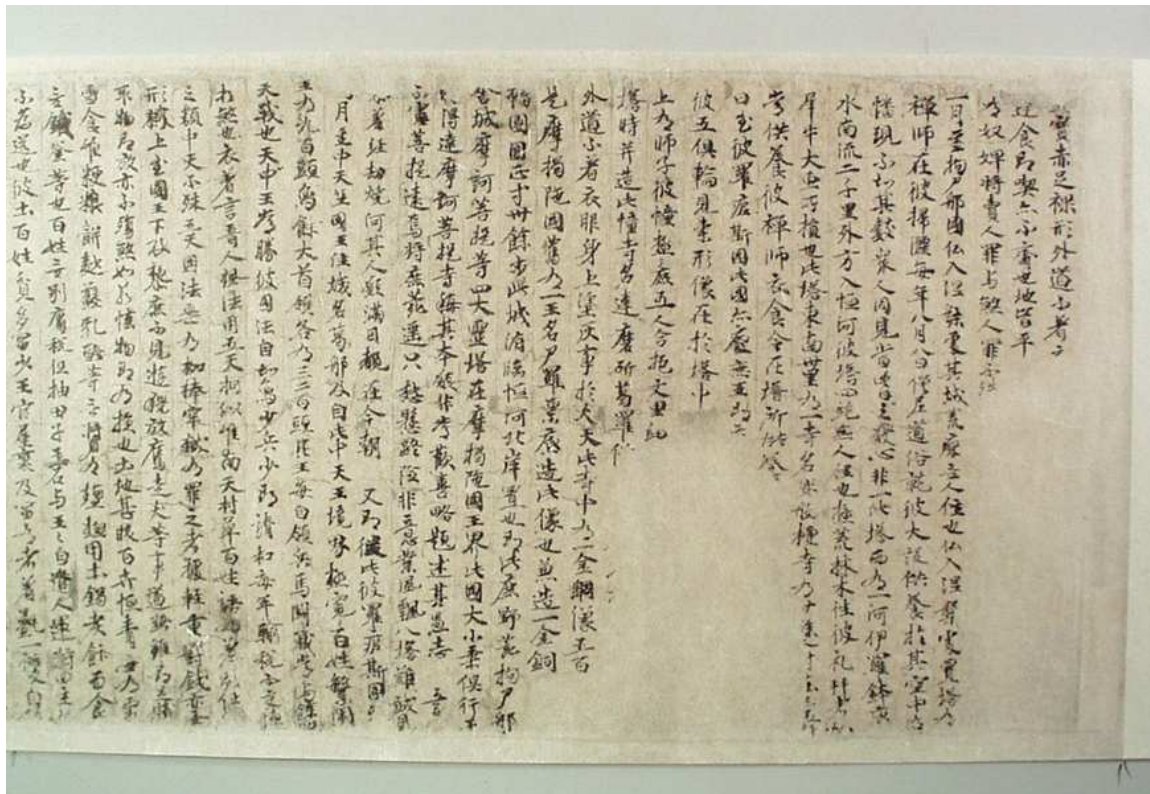 寶赤足裸形外道不著
逕食即喫亦不齋也地皆平
有奴婢將賣人罪与煞人罪不殊
一月至拘尸那國仏入涅槃處其城荒廢無人住也仏入涅槃處置塔有
禪師在彼掃灑每年八月八日僧尼道俗就彼大設供養於其空中有
幡現不知其數衆人同見當此之日發心非一此塔西有一河伊羅鉢底
水南流二千里外方入恒河彼塔四絕無人住也極荒林木往彼礼拜者
犀牛大虫所損也此塔東南卅里有一寺名娑般檀寺有卅餘人
常供養彼禪師衣食令在塔所供養
日至彼羅痆斯國此國亦廢無王即六
彼五俱輪見素形像在於塔中
上有師子彼幢極麁五人合抱文里細
塔時并造此幢寺名達磨斫葛羅僧
外道不著衣服身上塗灰事於大天此寺中有一金銅像五百
是摩揭陁國舊有一王名尸羅票底造此像也兼造一金銅
輻團圓正等卅餘步此城俯臨恒河北岸置也即此鹿野苑拘尸那
舍城摩訶菩提等四大靈塔在摩揭陁國王界此國大小乘俱行于
得達摩訶菩提寺稱其本願非常歡喜略題述其愚志 五言
不慮菩提遠焉將鹿苑遥只愁懸路險非意業風飄八塔難誠見
參著經劫燒何其人願滿目覩在今朝 又即從此彼羅痆斯國
月至中天竺國王住城名葛那及自此中天王境界極寬百姓繁鬧
王有九百頭象餘大首領各有三二百頭其王每自領兵馬鬪戰常與餘
天戰也天中王常勝彼國法自知象少兵少即請和每年輸稅不交陣
相煞也衣著言音人風法用五天相似唯南天村草百姓語有差別仕
之類中天不殊五天國法無有枷棒牢獄有罪之者據輕重罰錢亦無
形戮上至國王下及黎庶不見遊獵放鷹走犬等事道路雖即足賊
取物即放亦不殤煞如若恡物即有損也土地甚暖百卉恒青無有霜
雪食唯粳粮餅麨蘇乳酪等無醬有鹽總用土鍋煮飯而食
無鐵釜等也百姓無別庸稅但抽田子一石与王王自遣人運將田主
不為送也彼土百姓貧多富少王官屋裏及富有者著㲲一雙自